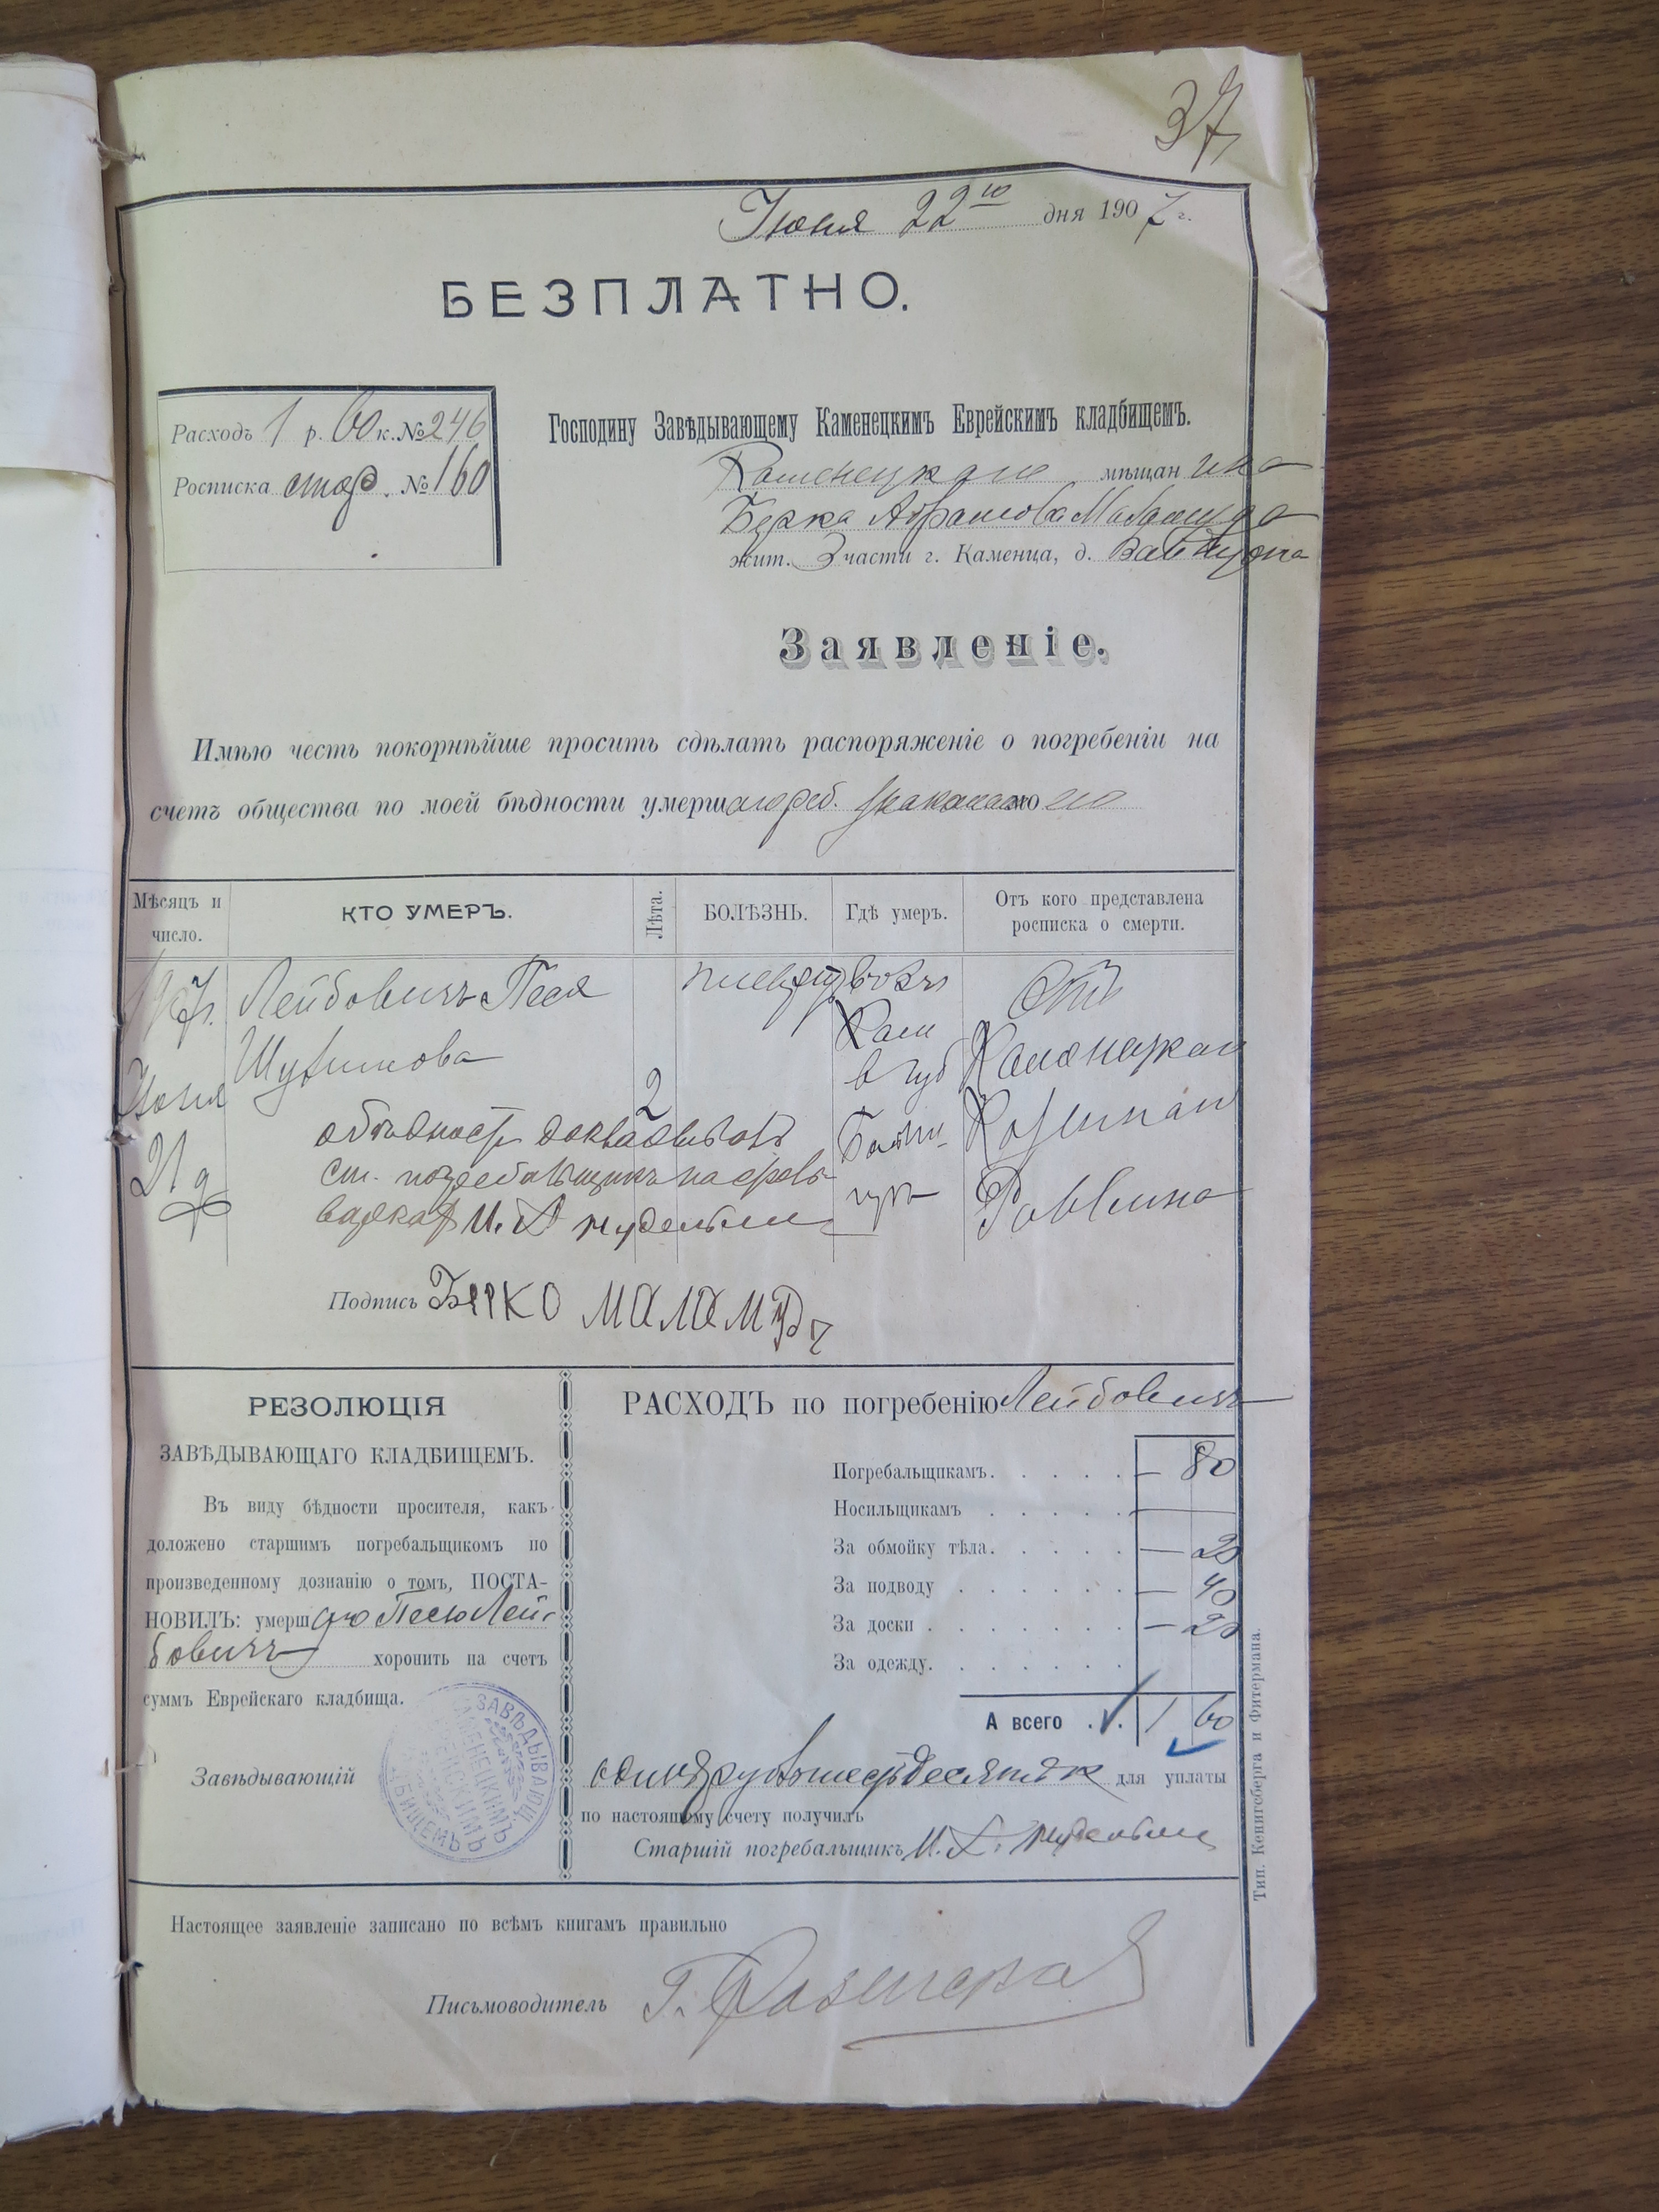 37
Июня 22го дня 1907 г.
БЕЗПЛАТНО.
Расходъ 1 р. 60 к. № 246
Росписка стор. № 160
Господину Завѣдывающему Каменецкимъ Еврейскимъ кладбищемъ.
Каменецкаго мѣщанина
Берка Абрамова Маламуда
жит. 3 части г. Каменца, д.
Заявленіе.
Имѣю честь покорнѣйше просить сдѣлать распоряженіе о погребеніи на
счетъ общества по моей бѣдности умершаго реб.
Мѣсяцъ и число.
КТО УМЕРЪ.
Лѣта.
БОЛѢЗНЬ.
Гдѣ умеръ.
Отъ кого представлена росписка о смерти.
1907 г.
Июня
21 д
Лейбовичъ Песя
2
Кам
въ губ
Больни
цѣ
Отъ
Каменецкаго
Раввина
о бѣдности
ст. погребальщикъ
Подпись Берко Маламудъ
РЕЗОЛЮЦІЯ
ЗАВѢДЫВАЮЩАГО КЛАДБИЩЕМЪ.
Въ виду бѣдности просителя, какъ
доложено старшимъ погребальщикомъ по
произведенному дознанію о томъ, ПОСТА-
НОВИЛЪ: умершую Песю Лей-
бовичъ хоронить на счетъ
суммъ Еврейскаго кладбища.
Завѣдывающій
ЗАВѢДЫВАЮЩ. КАМЕНЕЦКИМЪ ЕВРЕЙСКИМЪ КЛАДБИЩЕМЪ
РАСХОДЪ по погребенію Лейбовичъ
Погребальщикамъ. . . . . — 80
Носильщикамъ . . . . . —
За обмойку тѣла. . . . . — 20
За подводу . . . . . . — 40
За доски . . . . . . . — 20
За одежду. . . . . . .
А всего . . 1 60
одинъ рубль шестьдесятъ к для уплаты
по настоящему счету получилъ
Старшій погребальщикъ
Тип. Кенигсберга и Фитермана.
Настоящее заявленіе записано по всѣмъ книгамъ правильно
Письмоводитель